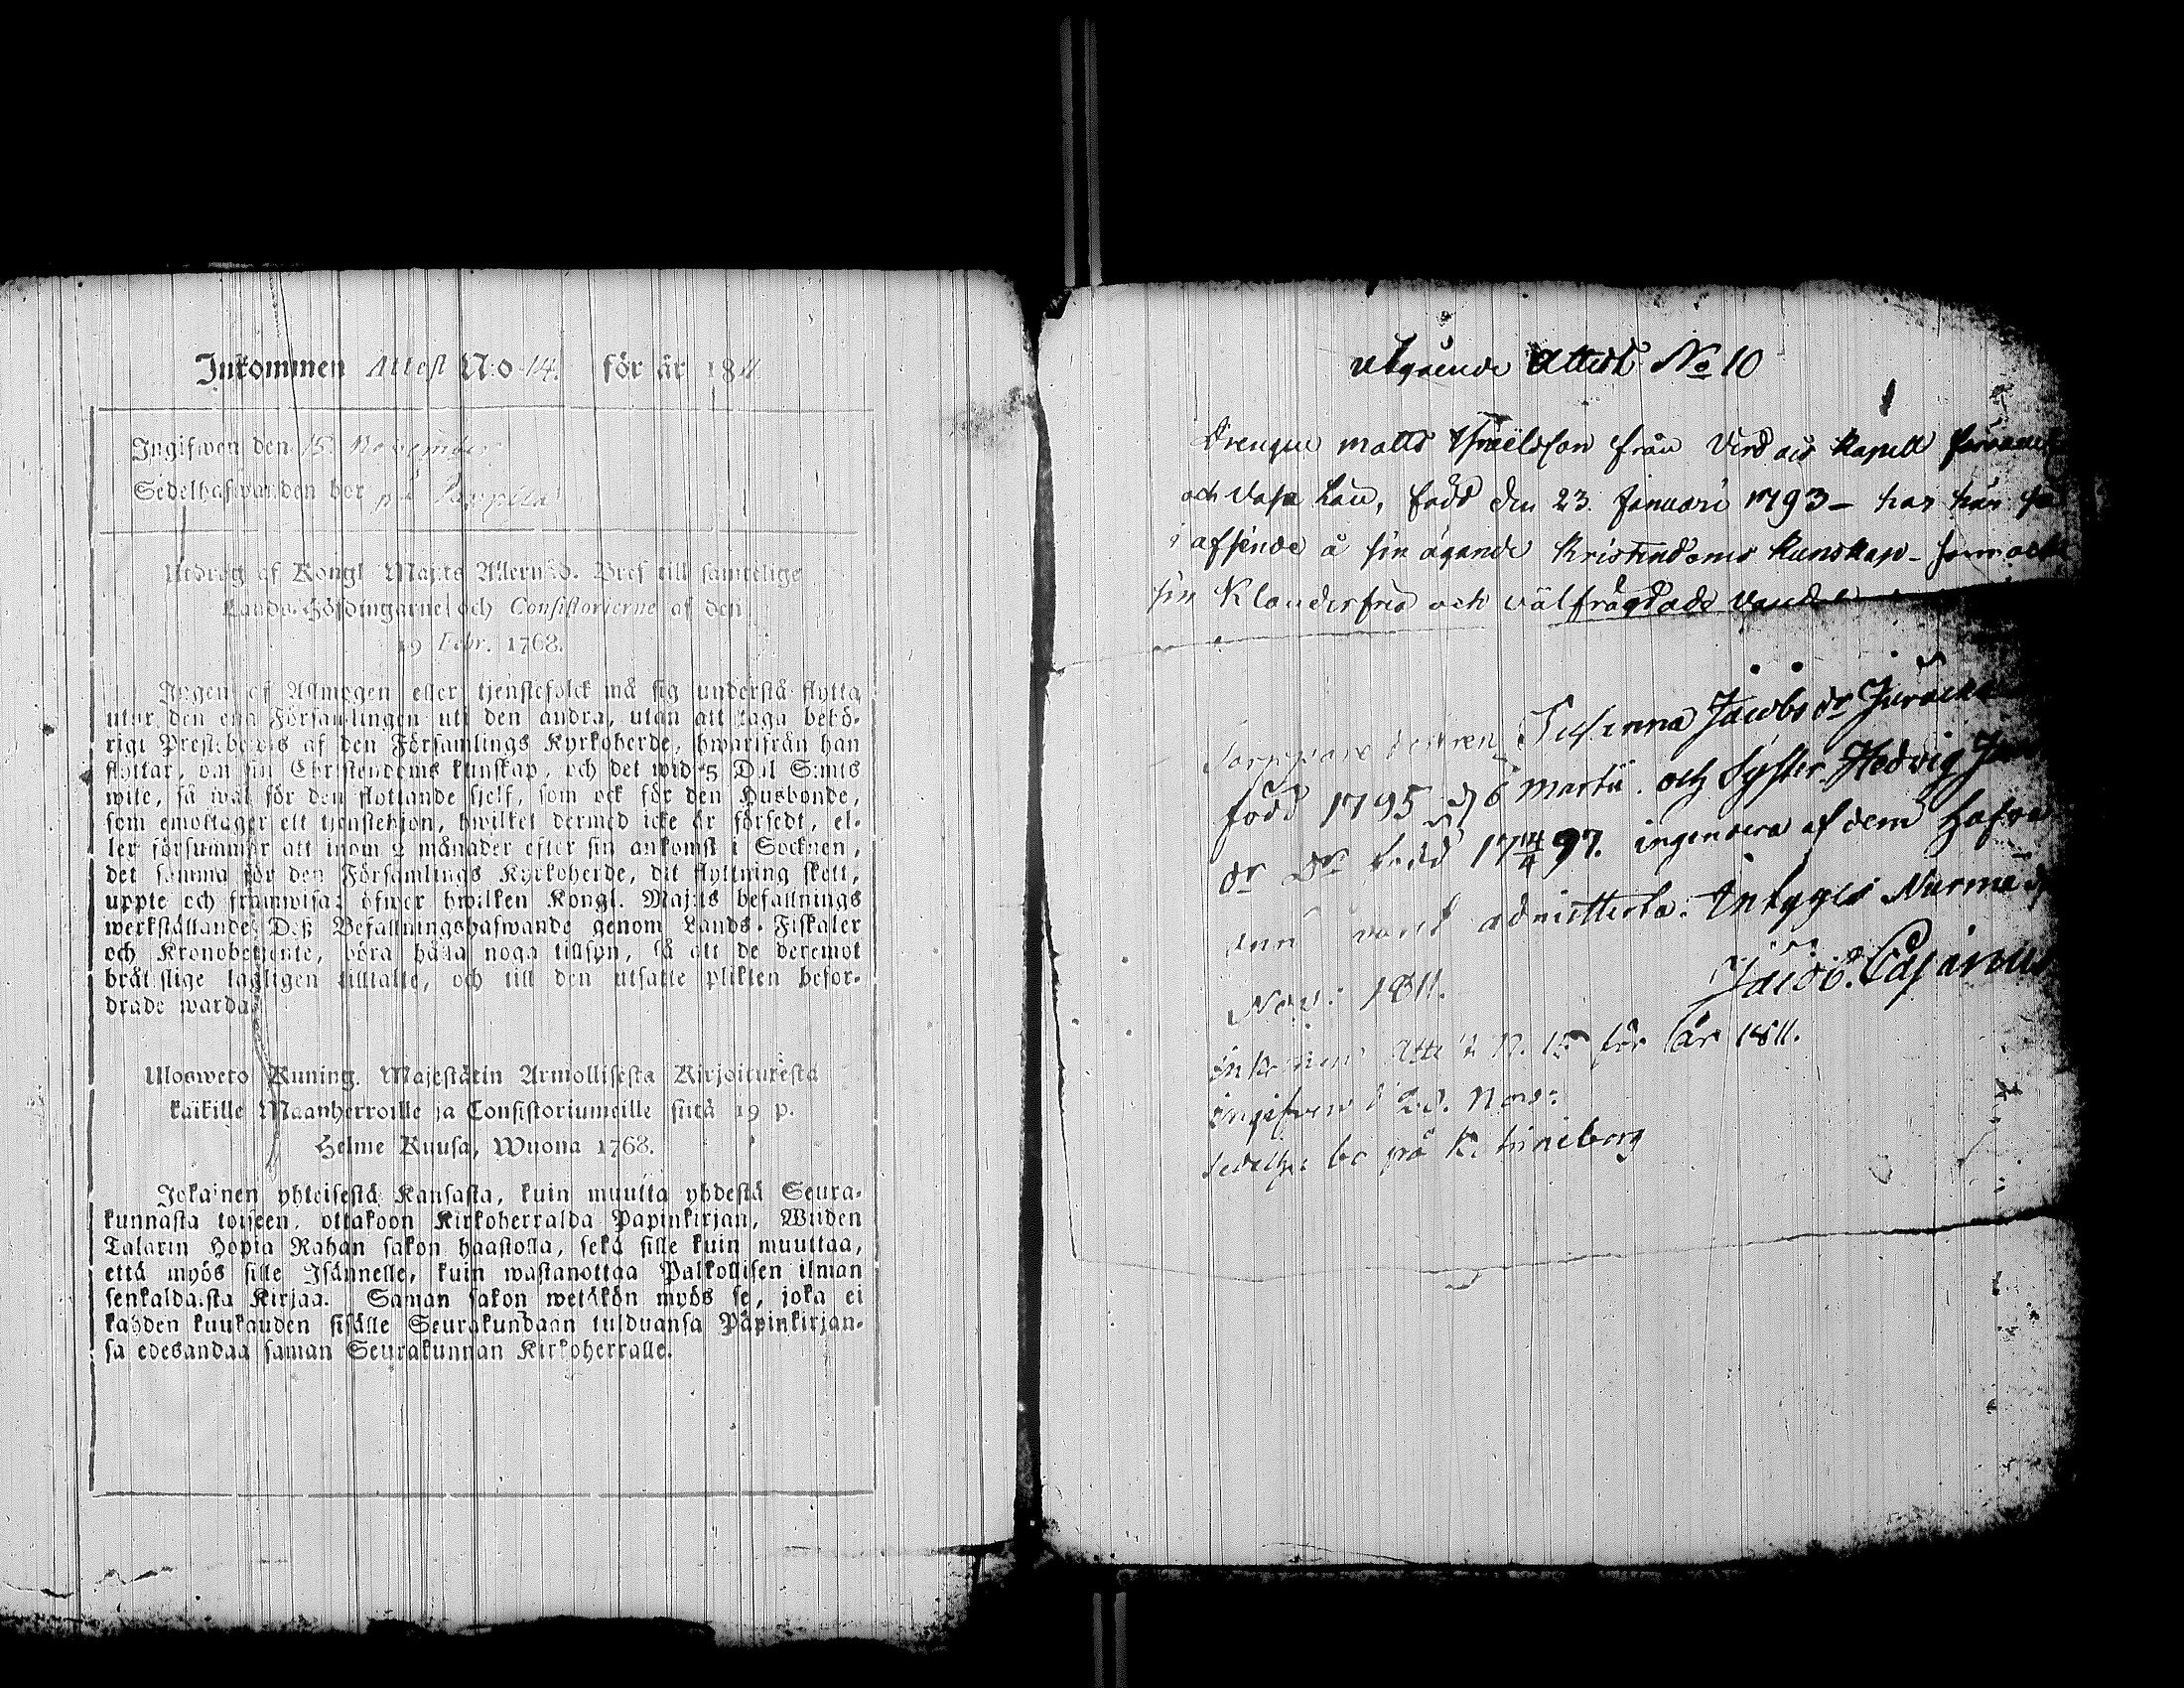 Inkommen Attest N:o 14. för år 1811
Ingifwen den 15 November
Sedelhafwanden bor på
Utdrag af Kongl. Maj:ts Allernåd. Bref till samtelige
Lands-Höfdingarne och Consistorierne af den
19 Febr. 1768.
Ingen af Allmogen eller tjenstefolck må sig understå flytta
utur den ena Församlingen uti den andra, utan att taga behö-
rigt Prestebewis af den Församlings Kyrkoherde, hwarifrån han
flyttar, om sin Christendoms kunskap, och det wid 5 Dal. S:mts
wite, så wäl för den flyttande sjelf, som ock för den Husbonde,
som emottager ett tjenstehjon, hwilket dermed icke är försedt, el-
ler försummar att inom 2 månader efter sin ankomst i Socknen,
det samma för den Församlings Kyrkoherde, dit flyttning skett,
uppte och framwisa; öfwer hwilken Kongl. Maj:ts befallnings
werkställande Deß Befallningshafwande genom Lands-Fiskaler
och Kronobetjente, böra hålla noga tillsyn, så att de deremot
brätslige lagligen tilltalte, och till den utsatte plikten befor-
drade warda.
Ulosweto Kuning. Majestätin Armollisesta Kirjoituresta
kaikille Maanherroille ja Consistoriumeille siitä 19 p.
Helme Kuusa, Wuona 1768.
Jokainen yhteisestä Kansasta, kuin muutta yhdestä Seura-
kunnasta toiseen, ottakoon Kirkoherralda Papinkirjan, Wiiden
Talarin Hopia Rahan sakon haastolla, sekä sille kuin muuttaa,
että myös sille Isännelle, kuin wastanottaa Palkollisen ilman
senkaldaista Kirjaa. Saman sakon wetäkön myös se, joka ei
kahden kuukauden sisälle Seurakundaan tulduansa Papinkirjan-
sa edesandaa saman Seurakunnan Kirkoherralle.
utgående Attest No 10
Drengen Matts från Virdois Kapell
och Vasa Län, född den 23. Januari 1793 - har han
i afseende å sin ägande Kristendoms Kunskap - som ock
sin Klanderfria och välfrägdade vandel
Susanna Jacobs dr
född 1795 d 6 Martii. och Syster Hedvig
dr född 17 14/4 97. ingendera af dem hafva
ännu varit admitterta. Intygas Nurmo d
Nov: 1811. Jacob. Cajanus
Inkommen Attest N. 15 för år 1811.
Ingifven d Nov:
bo på